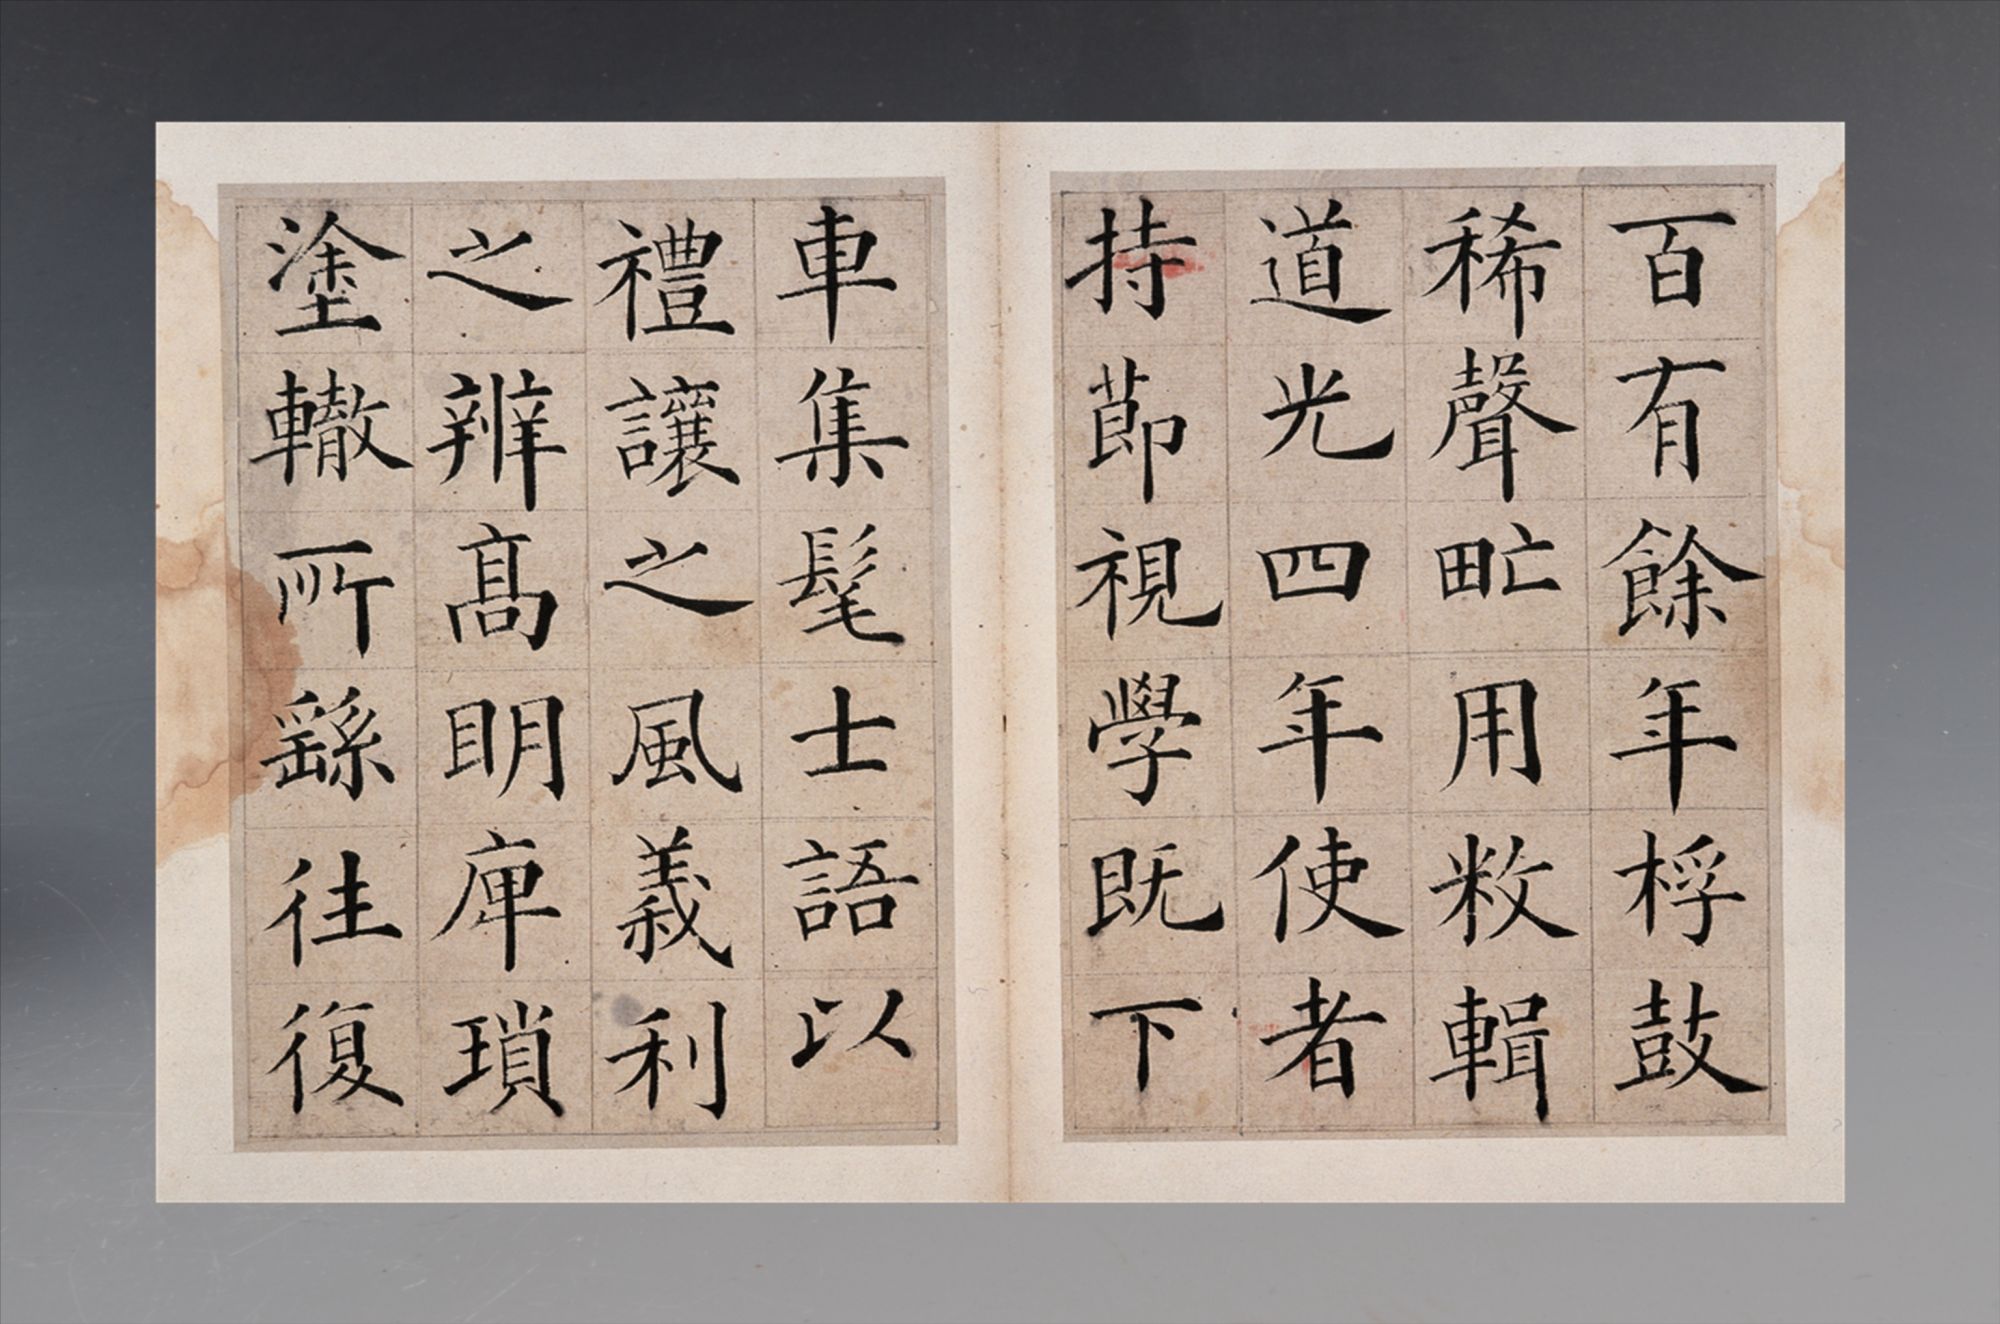 百有餘年桴鼓
稀聲甿用敉輯
道光四年使者
持莭視學既下
車集髦士語以
禮讓之風義利
之辨髙明庳瑣
塗轍所繇往復